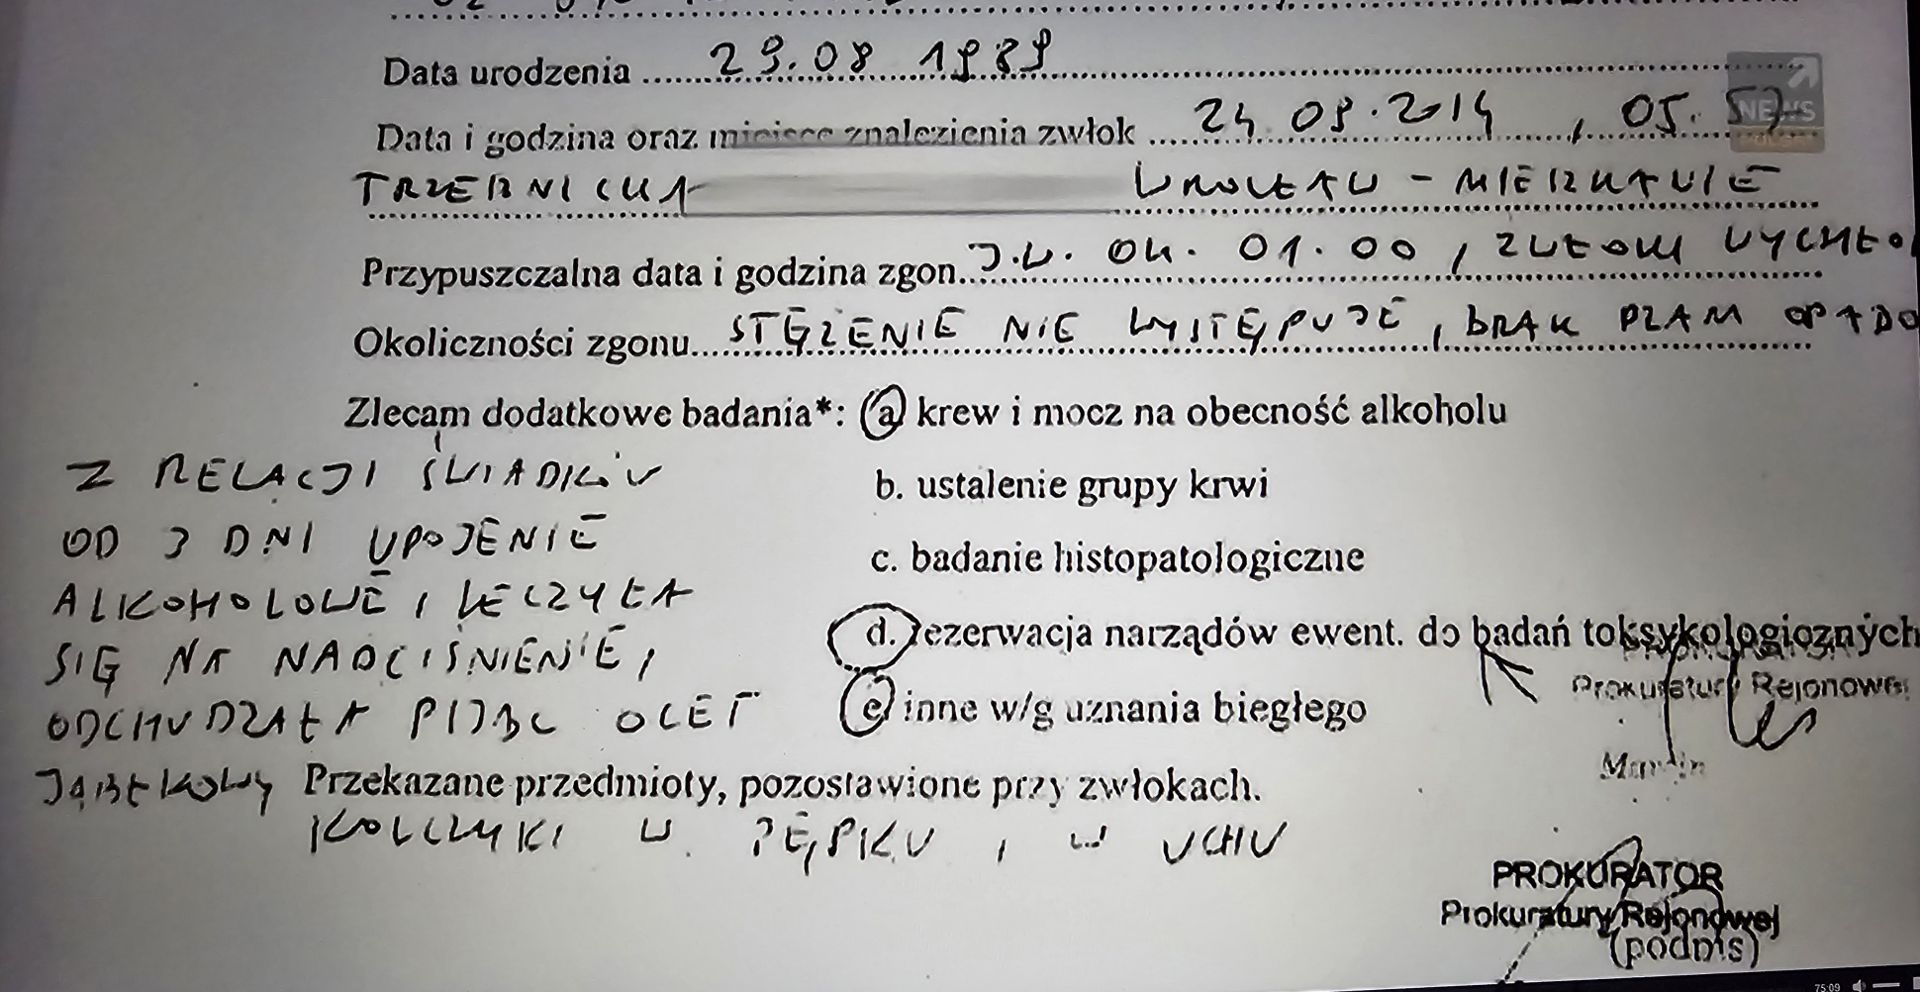 Data urodzenia 29.08 1989
Data i godzina oraz miejsce znalezienia zwłok 24 08.2014, 05.57
TRZEBNICKA WROCŁAW - MIESZKANIE
Przypuszczalna data i godzina zgon J.W. OK. 01.00, ZWŁOKI WYCHŁO
Okoliczności zgonu STĘŻENIE NIE WYSTĘPUJE, BRAK PLAM OPADO
Zlecam dodatkowe badania*: a krew i mocz na obecność alkoholu
Z RELACJI ŚWIADKÓW
b. ustalenie grupy krwi
OD 3 DNI UPOJENIE
c. badanie histopatologiczne
ALKOHOLOWE, LECZYŁA
d. rezerwacja narządów ewent. do badań toksykologicznych
SIĘ NA NADCIŚNIENIE,
Prokuratury Rejonowej
ODCHUDZAŁA PIJĄC OCET
e inne w/g uznania biegłego
JABŁKOWY
Przekazane przedmioty, pozostawione przy zwłokach.
Marcin
KOLCZYKI W PĘPKU, W UCHU
PROKURATOR
Prokuratury Rejonowej
(podpis)
NEWS
POLSAT
75:09